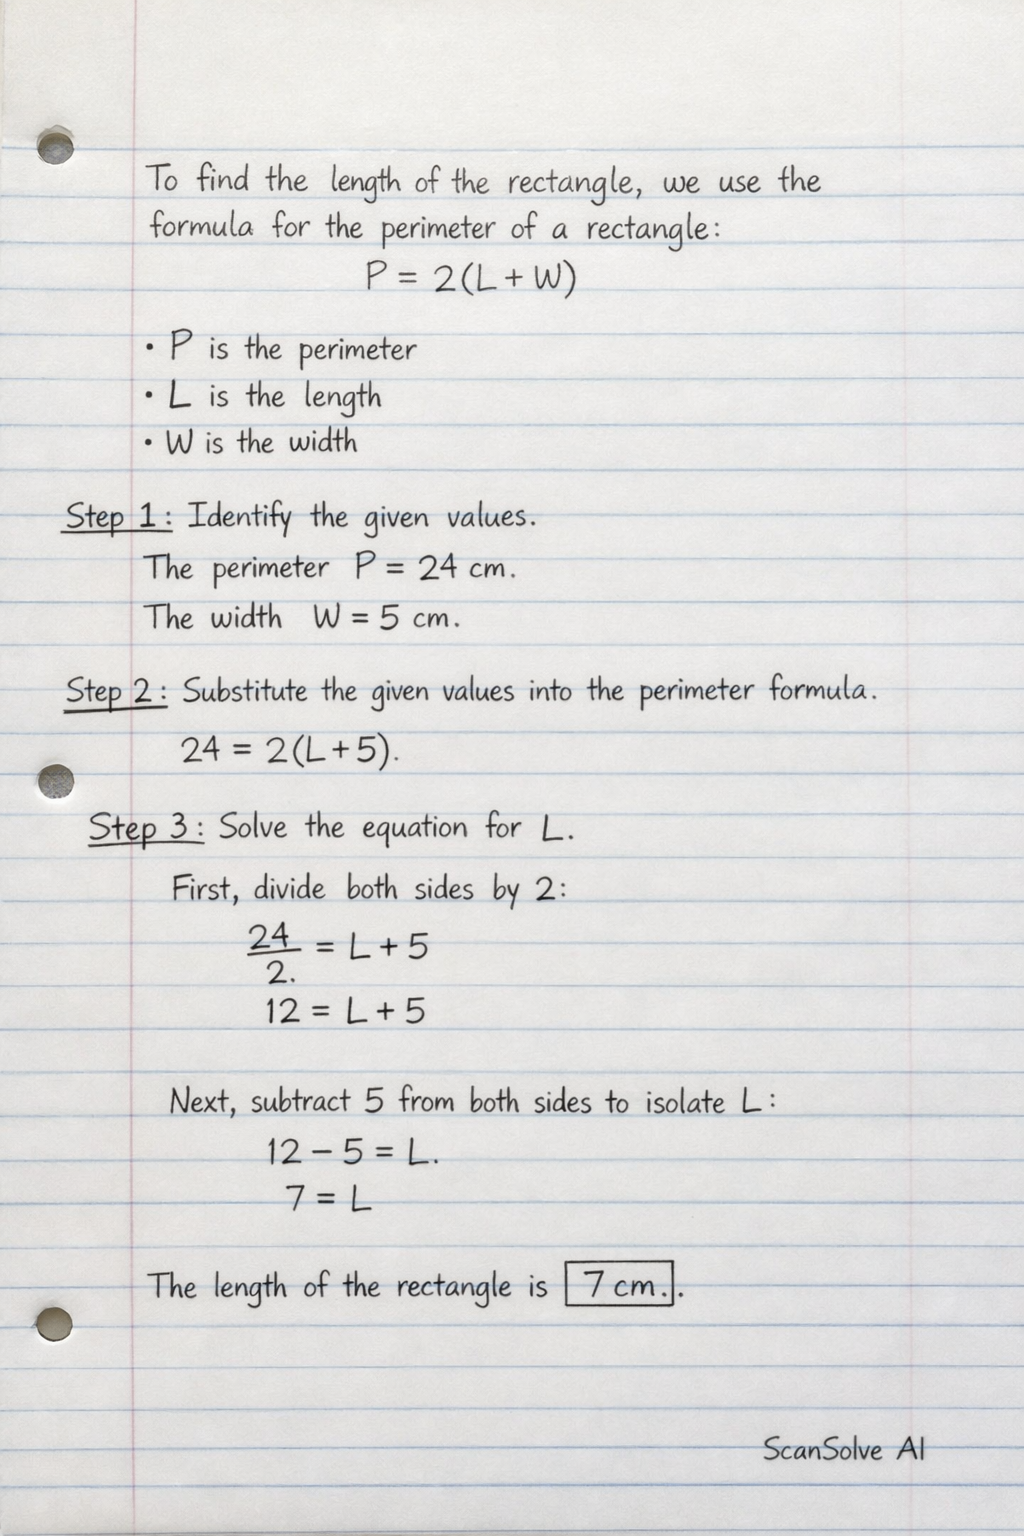 To find the length of the rectangle, we use the
formula for the perimeter of a rectangle:
P = 2(L + W)
• P is the perimeter
• L is the length
• W is the width
Step 1: Identify the given values.
The perimeter P = 24 cm.
The width W = 5 cm.
Step 2: Substitute the given values into the perimeter formula.
24 = 2(L + 5).
Step 3: Solve the equation for L.
First, divide both sides by 2:
24/2. = L + 5
12 = L + 5
Next, subtract 5 from both sides to isolate L:
12 – 5 = L.
7 = L
The length of the rectangle is 7 cm..
ScanSolve AI